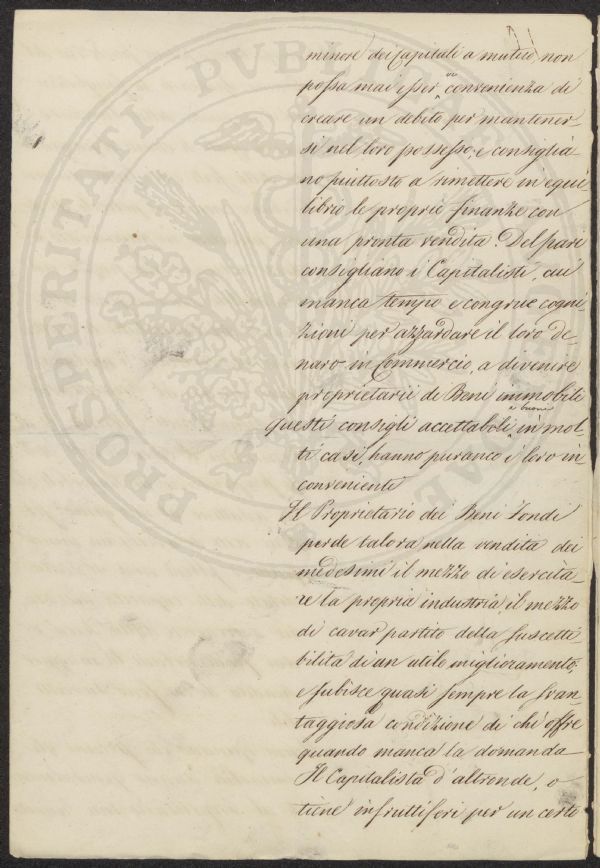 minore dei Capitali a mutuo, non
possa mai esser vi convenienza di
creare un debito per mantener-
si nel loro possesso, e consiglia-
no piuttosto a rimettere in equi
librio le proprie finanze con
una pronta vendita. Del pari
consigliano i Capitalisti, cui
manca tempo e congrue cogni-
zioni per azzardare il loro de-
naro in Commercio, a divenire
proprietarii di Beni immobili
questi consigli accettabili e buoni in mol-
ti casi, hanno puranco i loro in-
convenienti
Il Proprietario dei Beni Fondi
perde talora nella vendita dei
medesimi il mezzo di esercita-
re la propria industria, il mezzo
di cavar partito della suscetti-
bilità di un utile miglioramento,
e subisce quasi sempre la svan-
taggiosa condizione di chi offre
quando manca la domanda
Il Capitalista d'altronde, o
tiene infruttiferi per un certo
PROSPERITATI PVBLICAE